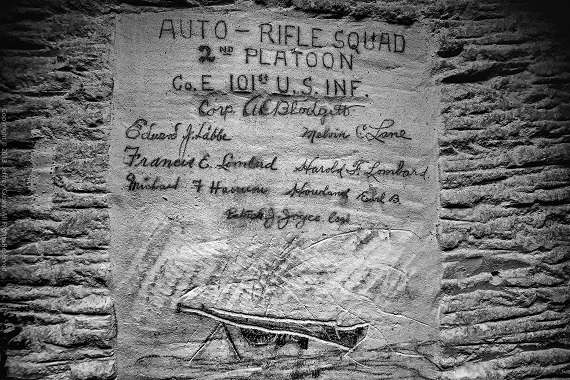 AUTO-RIFLE SQUAD
2ND PLATOON
Co. E 101st U.S. INF.
Corp. Blodgett
Edward J. Libbe Melvin C. Lane
Francis E. Lombard Harold F. Lombard
Michael F Howland Earl B.
Patrick J. Joyce